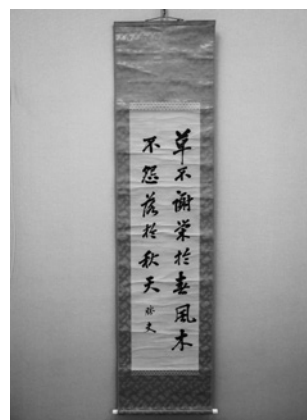 草不謝栄於春風木
不怨落於秋天